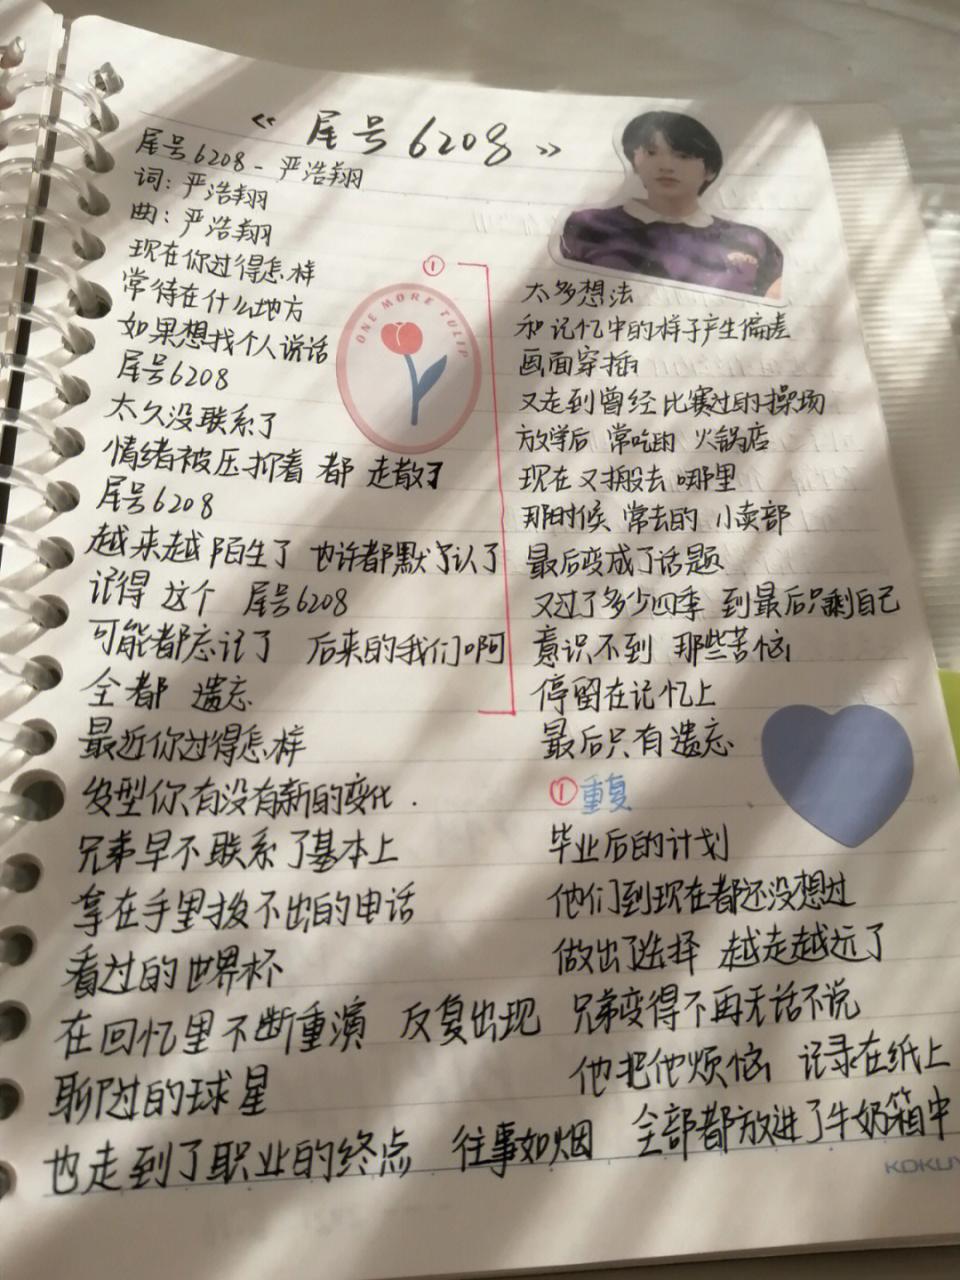 《尾号6208》
尾号6208 - 严浩翔
词：严浩翔
曲：严浩翔
现在你过得怎么样
常待在什么地方
如果想找个人说话
尾号6208
太久没联系了
情绪被压抑着 都 走散了
尾号6208
越来越陌生了 也许都默认了
记得 这个 尾号6208
可能都忘记了 后来的我们啊
全都 遗忘
最近你过得怎么样
发型你有没有新的变化.
兄弟早不联系了基本上
拿在手里拨不出的电话
看过的世界杯
在回忆里不断重演 反复出现
聊过的球星
也走到了职业的终点 往事如烟
①
ONE MORE TULIP
太多想法
和记忆中的样子产生偏差
画面穿插
又走到曾经比赛过的操场
放学后 常吃的 火锅店
现在又搬去 哪里
那时候 常去的 小卖部
最后变成了话题
又过了多少四季 到最后只剩自己
意识不到 那些苦恼
停留在记忆上
最后只有遗忘
①重复
毕业后的计划
他们到现在都还没想过
做出了选择 越走越远了
兄弟变得不再无话不说
他把他烦恼 记录在纸上
全部都放进了牛奶箱中
KOKUY